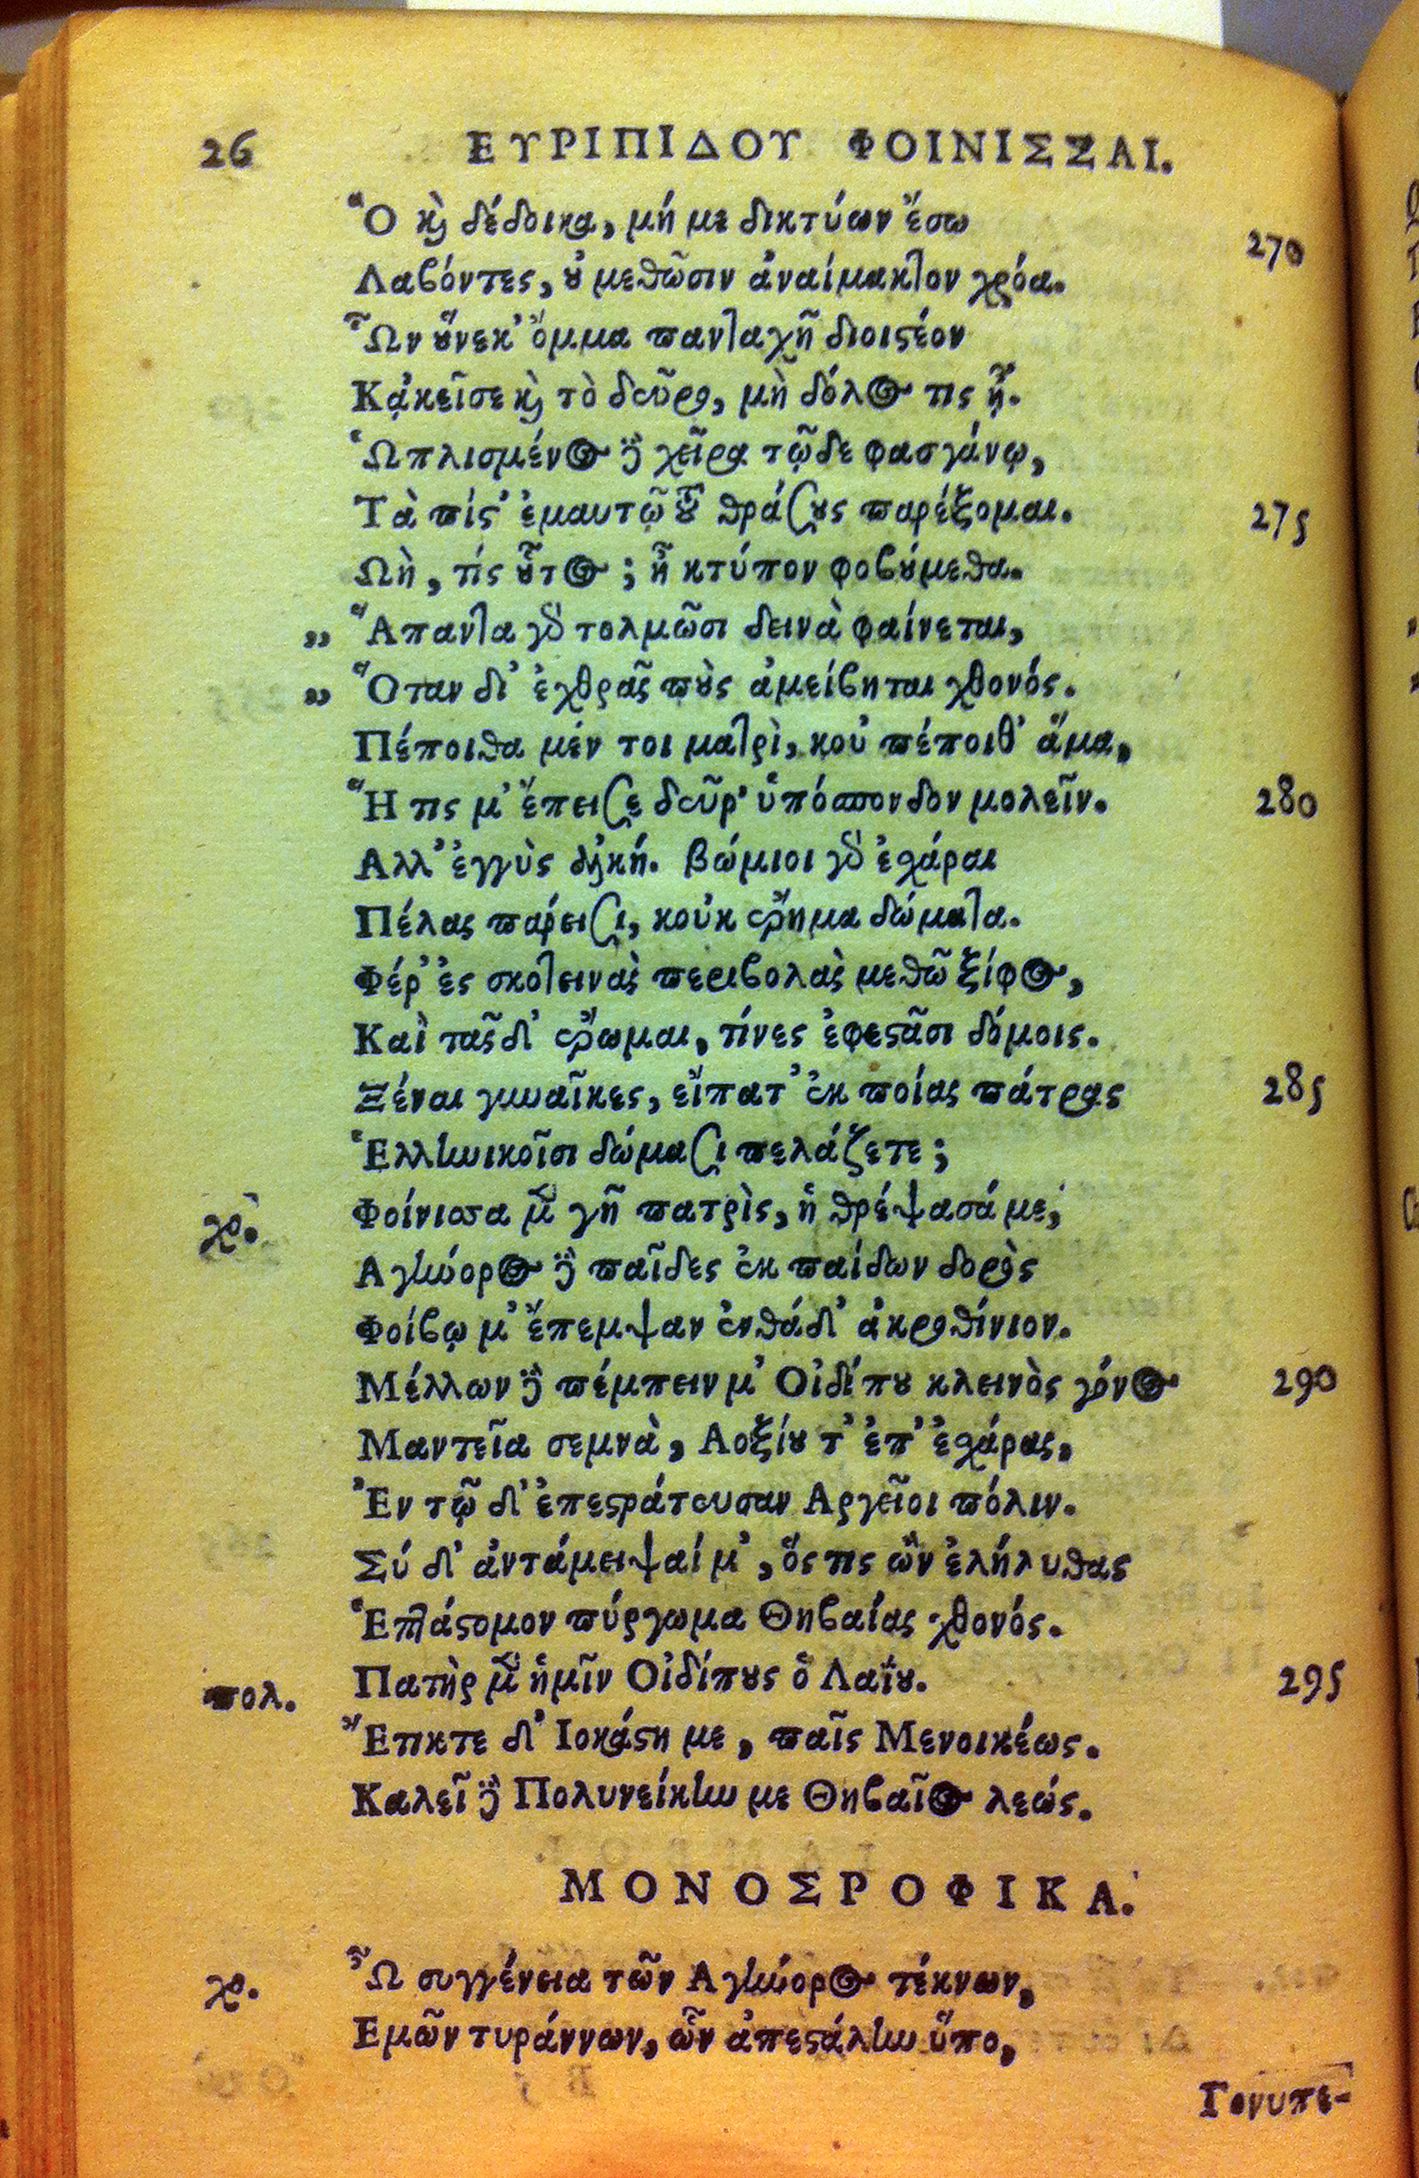 26 ΕΥΡΙΠΙΔΟΥ ΦΟΙΝΙΣΣΑΙ.
Ὃ καὶ δέδοικα, μή με δικτύων ἔσω 270
Λαβόντες, οὐ μεθῶσιν ἀναίμακτον χρόα.
Ὧν οὕνεκ' ὄμμα πανταχῆ διοιστέον
Κἀκεῖσε καὶ τὸ δεῦρο, μὴ δόλος τις ᾖ.
Ὡπλισμένος δὲ χεῖρα τῷδε φασγάνῳ,
Τὰ πίστ' ἐμαυτῷ τοῦ θράσους παρέξομαι. 275
Ωὴ, τίς οὗτος; ἢ κτύπον φοβούμεθα.
„ Ἅπαντα γὰρ τολμῶσι δεινὰ φαίνεται,
„ Ὅταν δι' ἐχθρᾶς ποὺς ἀμείβηται χθονός.
Πέποιθα μέν τοι ματρὶ, κοὐ πέποιθ' ἅμα,
Ἥ τις μ' ἔπεισε δεῦρ' ὑπόσπονδον μολεῖν. 280
Αλλ' ἐγγὺς ἀλκή. βώμιοι γὰρ ἐχάραι
Πέλας πάρεισι, κοὐκ ἔρημα δώματα.
Φέρ' ἐς σκοτεινὰς περιβολὰς μεθῶ ξίφος,
Καὶ τᾶςδ' ἔρωμαι, τίνες ἐφεστᾶσι δόμοις.
Ξέναι γυναῖκες, εἴπατ' ἐκ ποίας πάτρας 285
Ἑλληνικοῖσι δώμασι πελάζετε;
χο. Φοίνισσα μὲν γῆ πατρὶς, ἡ θρέψασά με,
Αγήνορος δὲ παῖδες ἐκ παίδων δορὸς
Φοίβῳ μ' ἔπεμψαν ἐνθάδ' ἀκροθίνιον.
Μέλλων δὲ πέμπειν μ' Οἰδίπου κλεινὸς γόνος 290
Μαντεῖα σεμνὰ, Λοξίου τ' ἐπ' ἐχάρας,
Ἐν τῷ δ' ἐπεστράτευσαν Αργεῖοι πόλιν.
Σύ δ' ἀντάμειψαί μ', ὅς τις ὢν ἐλήλυθας
Ἑπτάστομον πύργωμα Θηβαίας χθονός.
πολ. Πατὴρ μὲν ἡμῖν Οἰδίπους ὁ Λαΐου. 295
Ἔτικτε δ' Ιοκάστη με, παῖς Μενοικέως.
Καλεῖ δὲ Πολυνείκην με Θηβαῖος λεώς.
ΜΟΝΟΣΡΟΦΙΚΑ.
χο. Ὦ συγγένεια τῶν Αγήνορος τέκνων,
Εμῶν τυράννων, ὧν ἀπεστάλην ὕπο,
Γονυπε-